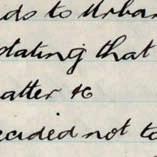 ds to Urban
stating that
atter &c
ecided not to